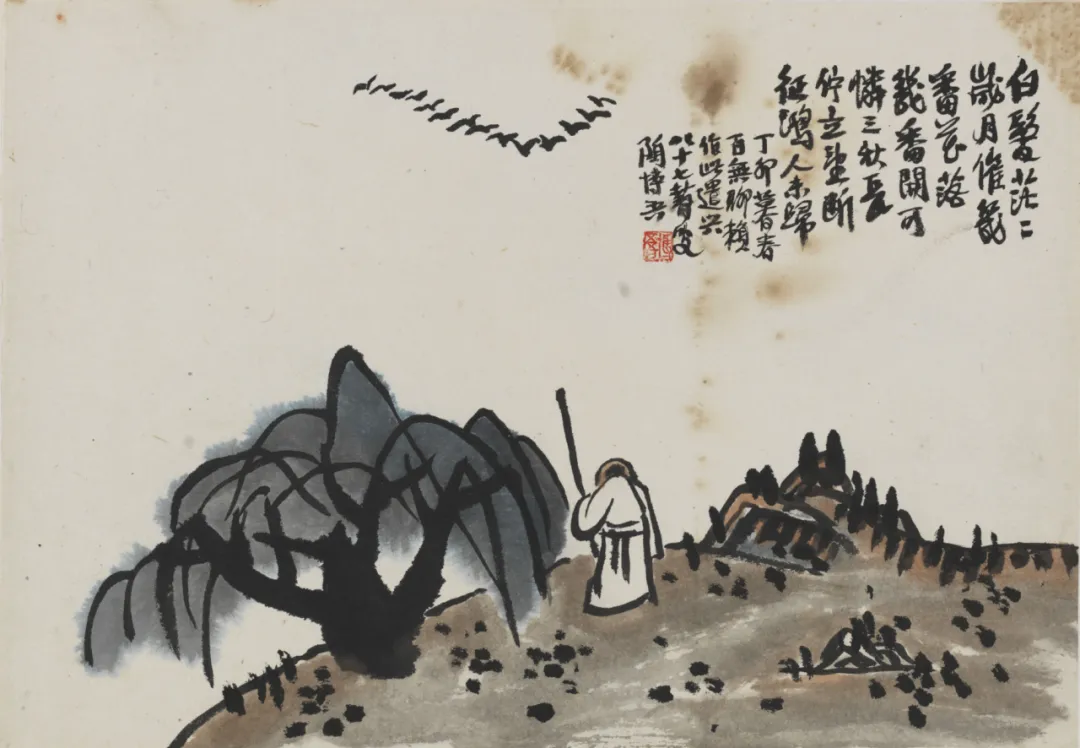 白髮茫〻
歲月催幾
番花落
幾番開可
憐三秋長
佇立望斷
征鴻人未歸
丁卯暮春
百無聊賴
作此遣兴
八十七瞽叟
陶博吾